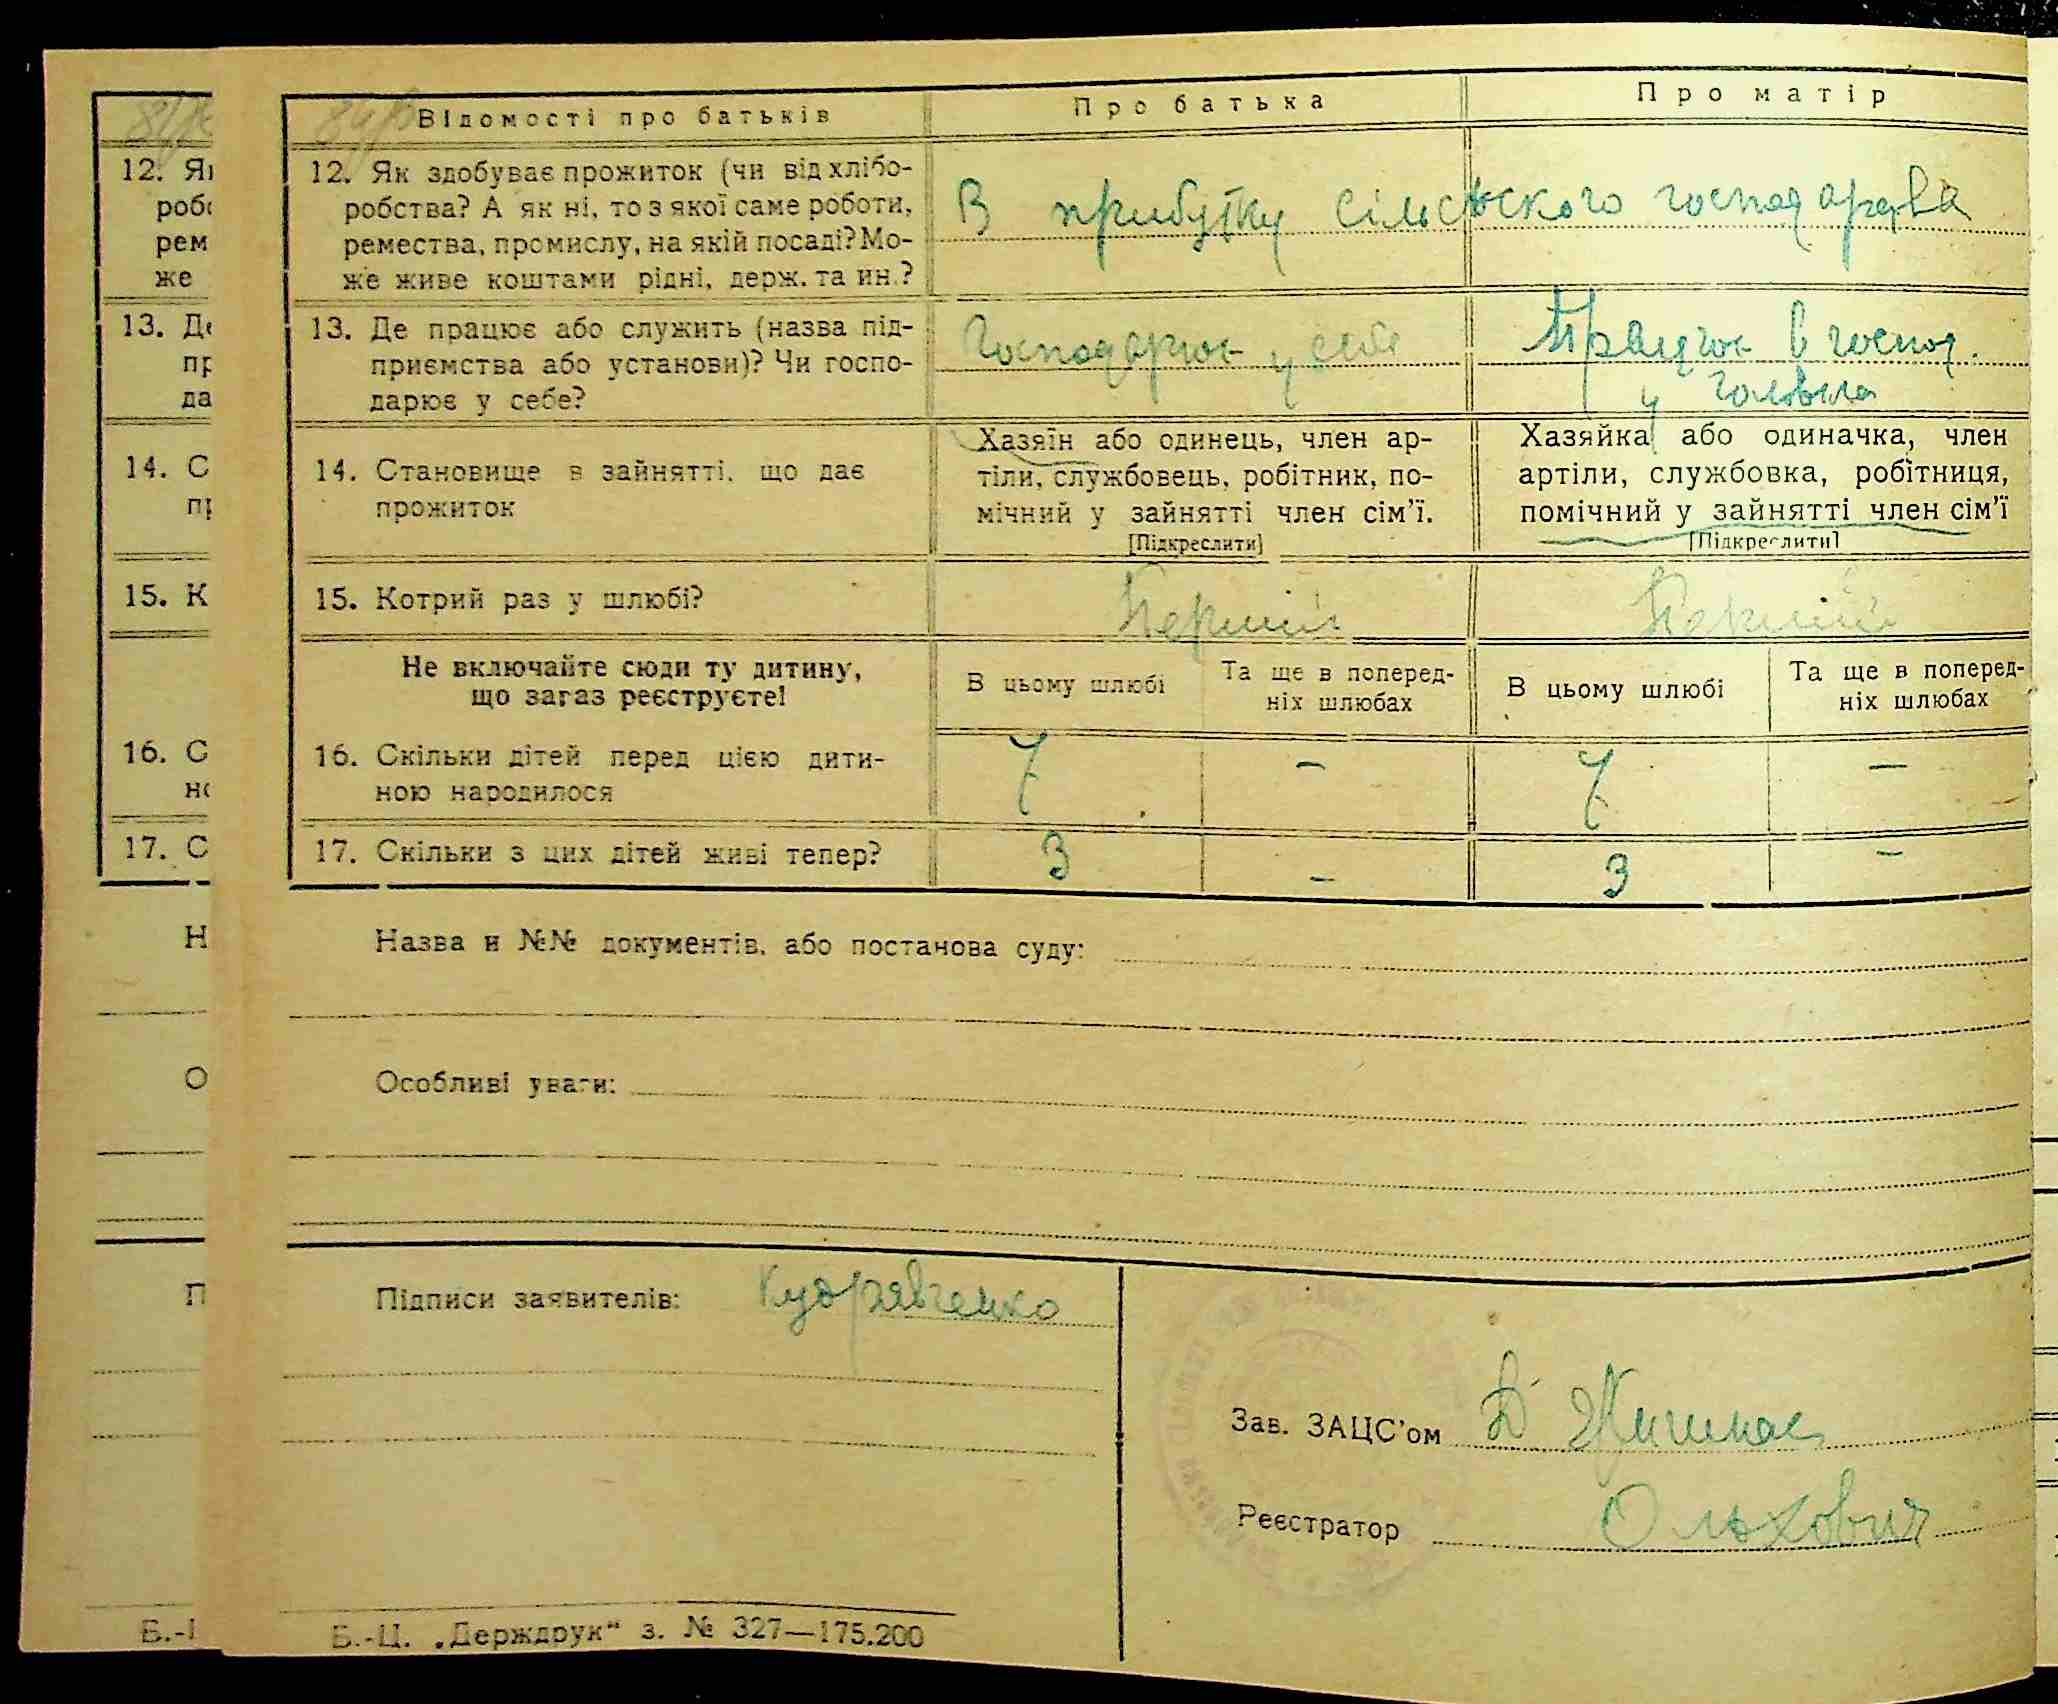 Відомості про батьків
Про батька
Про матір
12. Як здобуває прожиток (чи від хлібо-
робства? А як ні, то з якої саме роботи,
ремества, промислу, на якій посаді? Мо-
же живе коштами рідні, держ. та ин.?
В прибутку сільського господарства
13. Де працює або служить (назва під-
приємства або установи)? Чи госпо-
дарює у себе?
Господарює у себе
Працює в господ.
у чоловіка
14. Становище в зайнятті, що дає
прожиток
Хазяїн або одинець, член ар-
тіли, службовець, робітник, по-
мічний у зайнятті член сім'ї.
[Підкреслити]
Хазяйка або одиначка, член
артіли, службовка, робітниця,
помічний у зайнятті член сім'ї
[Підкреслити]
15. Котрий раз у шлюбі?
Перший
Перший
Не включайте сюди ту дитину,
що зараз реєструєте!
В цьому шлюбі
Та ще в поперед-
ніх шлюбах
В цьому шлюбі
Та ще в поперед-
ніх шлюбах
16. Скільки дітей перед цією дити-
ною народилося
7
–
7
–
17. Скільки з цих дітей живі тепер?
3
–
3
–
Назва и №№ документів, або постанова суду:
Особливі уваги:
Підписи заявителів: Кудрявченко
Зав. ЗАЦС'ом
Реєстратор Ольхович
Б.-Ц. „Держдрук" з. № 327—175.200
12. Як
робо
рем
же
13. Де
пр
да
14. С
пр
15. К
16. С
но
17. С
Н
О
П
Б.-